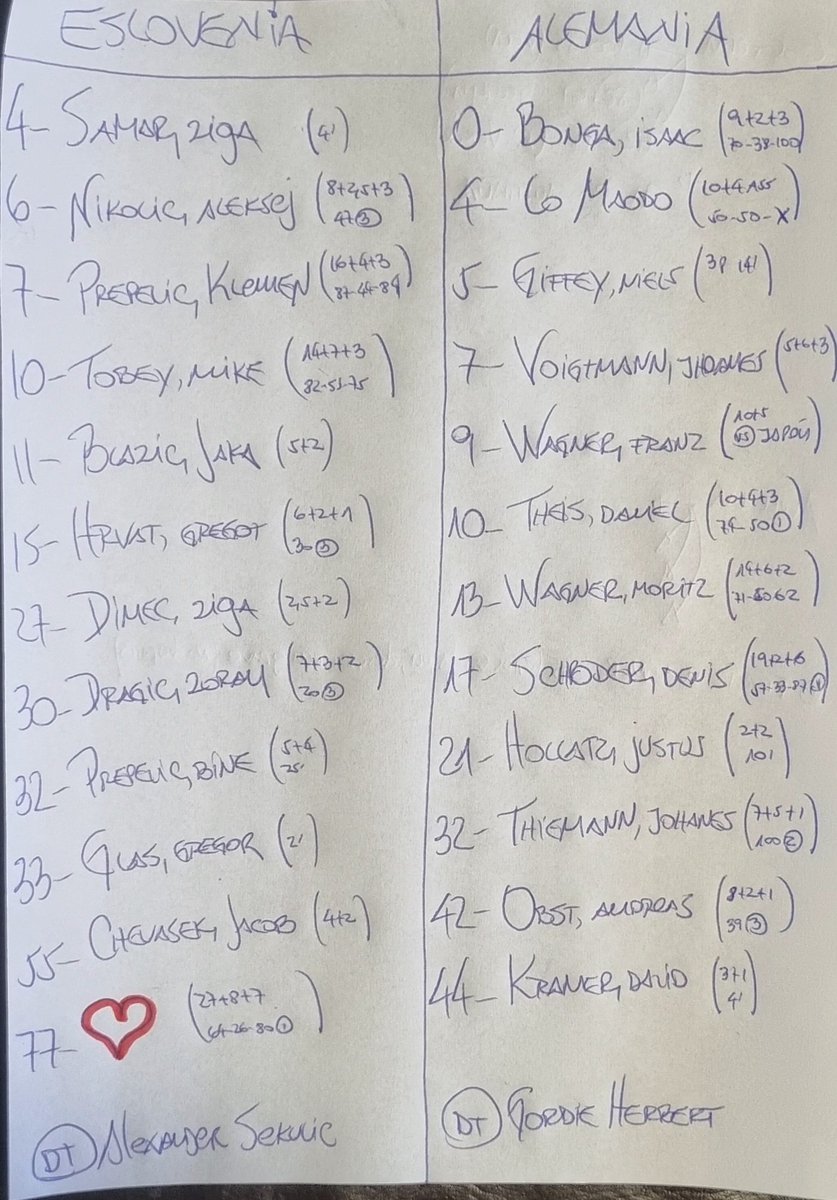 ESLOVENIA
4- SAMAR, ZIGA (4')
6- NIKOLIC, ALEKSEJ (8+2,5+3
47③)
7- PREPELIC, KLEMEN (16+4+3
87-44-89)
10- TOBEY, MIKE (14+7+3
82-53-75)
11- BLAZIC, JAKA (5+2)
15- HRVAT, GREGOT (6+2+1
30③)
27- DIMEC, ZIGA (2,5+2)
30- DRAGIC, ZORAN (7+3+2
20③)
32- PREPELIC, BINE (5+4
25')
33- GLAS, GREGOR (2')
55- CHEVASEK, JACOB (4+2)
77- (27+8+7
64-26-80①)
DT ALEXANDER SEKULIC
ALEMANIA
0- BONGA, ISAAC (9+2+3
70-38-100)
4- LO MAODO (10+4 ASS
50-50-X)
5- GIFFEY, NIELS (3P 14')
7- VOIGTMANN, JHOANES (5+6+3)
9- WAGNER, FRANZ (10+5
JAPÓN)
10- THEIS, DANIEL (10+4+3
74-50①)
13- WAGNER, MORITZ (14+6+2
71-5062)
17- SCHRODER, DENIS (19+2+6
57-33-87①)
21- HOLLATZ, JUSTUS (2+2
10')
32- THIEMANN, JOHANES (7+5+1
100②)
42- OBST, ANDREAS (8+2+1
39③)
44- KRAMER, DAVID (3+1
4')
DT GORDIE HERBERT